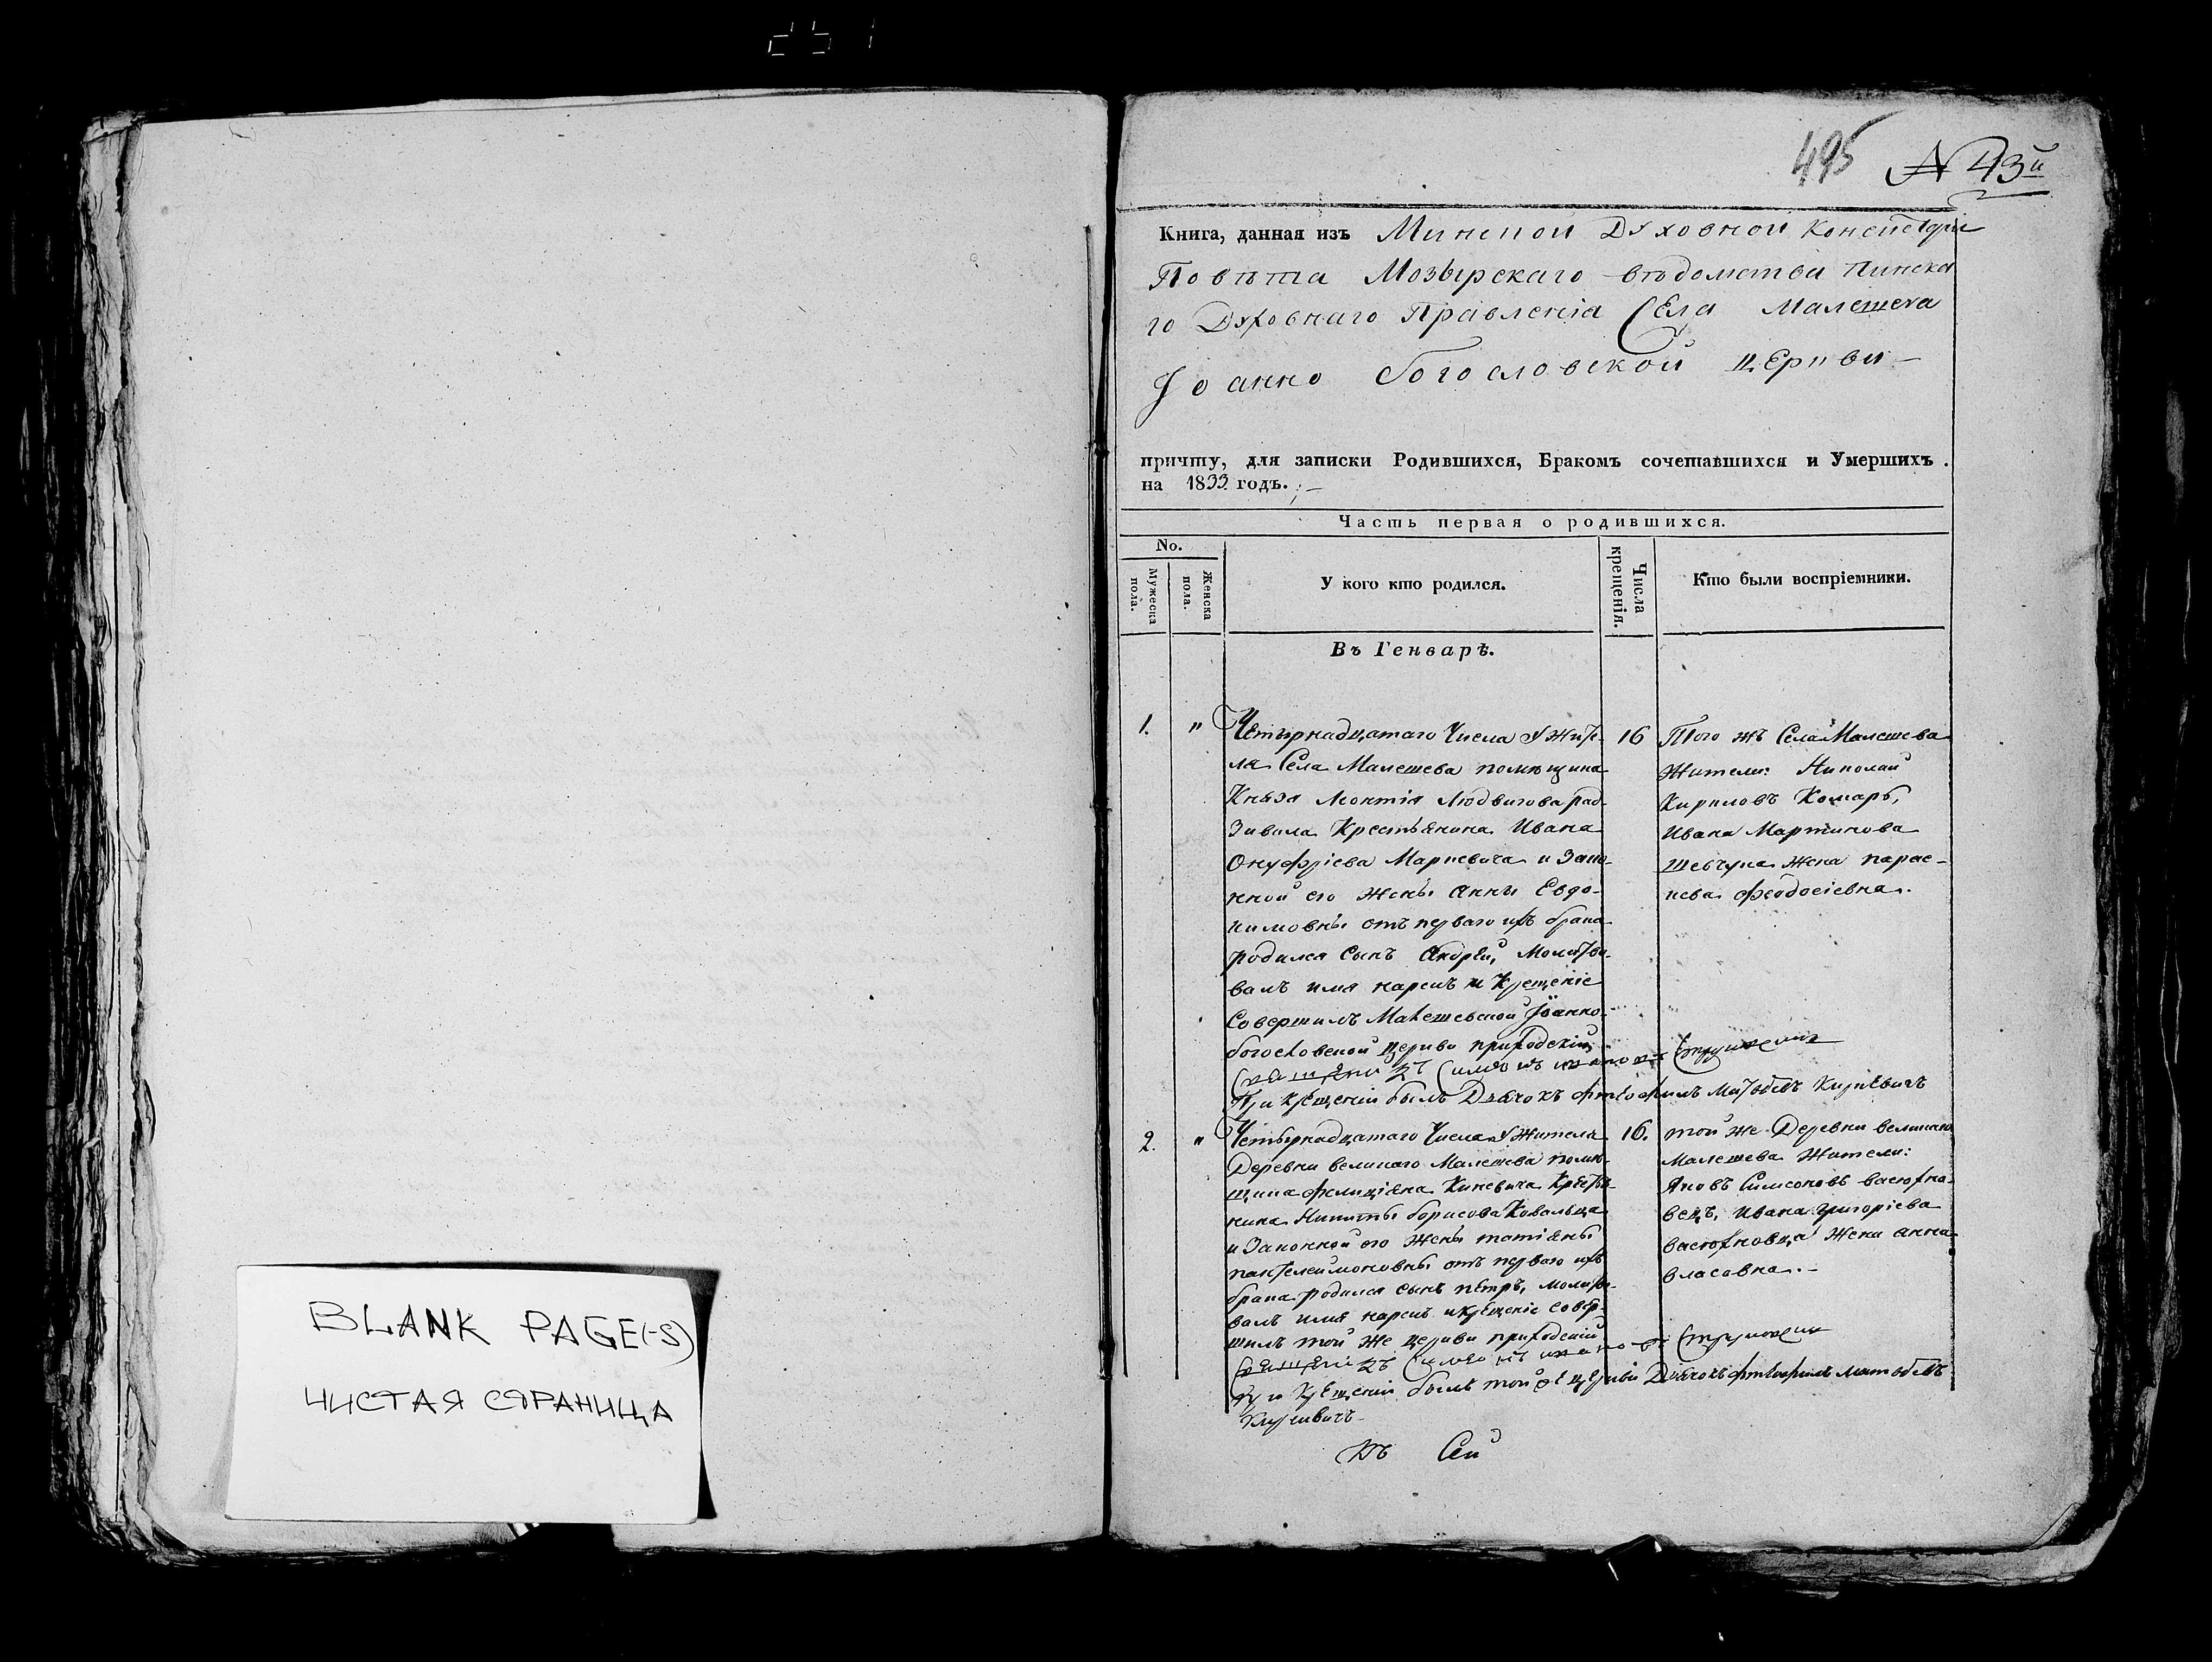 BLANK PAGE(-S)
ЧИСТАЯ СТРАНИЦА
495 N 43й
Книга, данная изъ Минской Духовной Консисторіи
Повѣта Мозырскаго вѣдомства Пинска
го Духовнаго Правленія Села Малешева
Іоанно Богословской церкви
причту, для записки Родившихся, Бракомъ сочетавшихся и Умершихъ
на 1833 годъ.
Часть первая о родившихся.
No.
Мужеска пола.
Женска пола.
У кого кто родился.
Числа крещенія.
Кто были воспріемники.
Въ Генварѣ.
1. " Четырнадцатаго Числа У Жите-
ля Села Малешева помѣщика
Князя Леонтія Людвигова рад-
Зивила Крестьянина Ивана
Онуфріева Маркевича и Зако-
нной его Жены Анны Евдо-
кимовны отъ перваго ихъ брака
родился Сынъ Андрей, Молитво-
валъ имя нарекъ и Крещеніе
Совершилъ Малешевской Іоанно-
богословской Церкви приходскій
Священникъ Симеонъ
При Крещеніи былъ Дьячокъ Матвѣевъ
16 Того жъ Села Малешева
Жители: Николай
Кириловъ Комаръ,
Ивана Мартинова
Шевчука Жена парас-
кева Феодосіевна.
2. " Четырнадцатаго Числа У Жителя
Деревни великаго Малешева помѣ-
щика Фелиціяна Киневича Крестья-
нина Никиты борисова Ковальца
и Законной его Жены татіяны
пантелеимоновны отъ перваго ихъ
брака родился сынъ пётръ, молитво-
валъ имя нарекъ и крещеніе совер-
шилъ той же церкви приходскій
Священникъ Симеонъ
При Крещеніи былъ той же церкви Дьячокъ Матвѣевъ
16. той же Деревни великаго
Малешева Жители:
Яковъ Симеоновъ васюхно-
вецъ, Ивана григоріева
васюхновца Жена анна
власовна.
Къ Сей